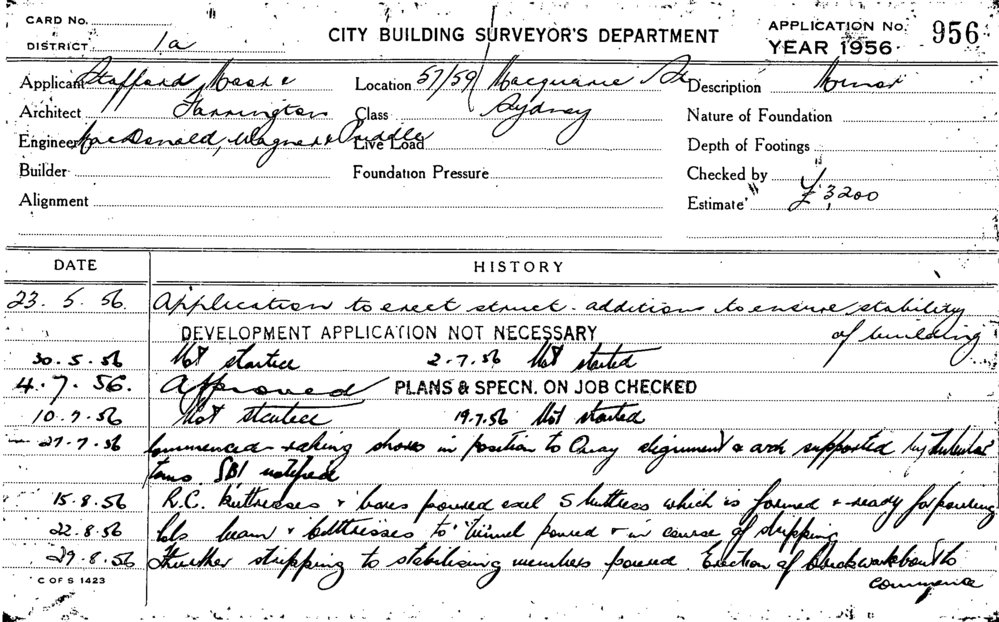 CARD No.
DISTRICT 1a
CITY BUILDING SURVEYOR'S DEPARTMENT
APPLICATION No. 956
YEAR 1956
Applicant Stafford Moore &
Location 57/59 Macquarie St
Description Minor
Architect Farrington
Class Sydney
Nature of Foundation
Engineer MacDonald, Wagner & Priddle
Live Load
Depth of Footings
Builder
Foundation Pressure
Checked by
Alignment
Estimate £3,200
DATE HISTORY
23. 5. 56. Application to erect struct. additions to ensure stability
of building
DEVELOPMENT APPLICATION NOT NECESSARY
30. 5. 56 Not started 2. 7. 56 Not started
4. 7. 56. Approved PLANS & SPECN. ON JOB CHECKED
10. 7. 56 Not started 19.7.56 Not started
27. 7. 56 Commenced raking shores in position to Quay alignment & arch supported by
SBI notified
15. 8. 56 R.C. buttresses & bases poured excl 5 buttress which is formed & ready for pouring
22. 8. 56 beam & buttresses to tunnel poured & in course of stripping
29. 8. 56 Further stripping to stabilising members poured. Erection of brickwork about to
commence
C OF S 1423